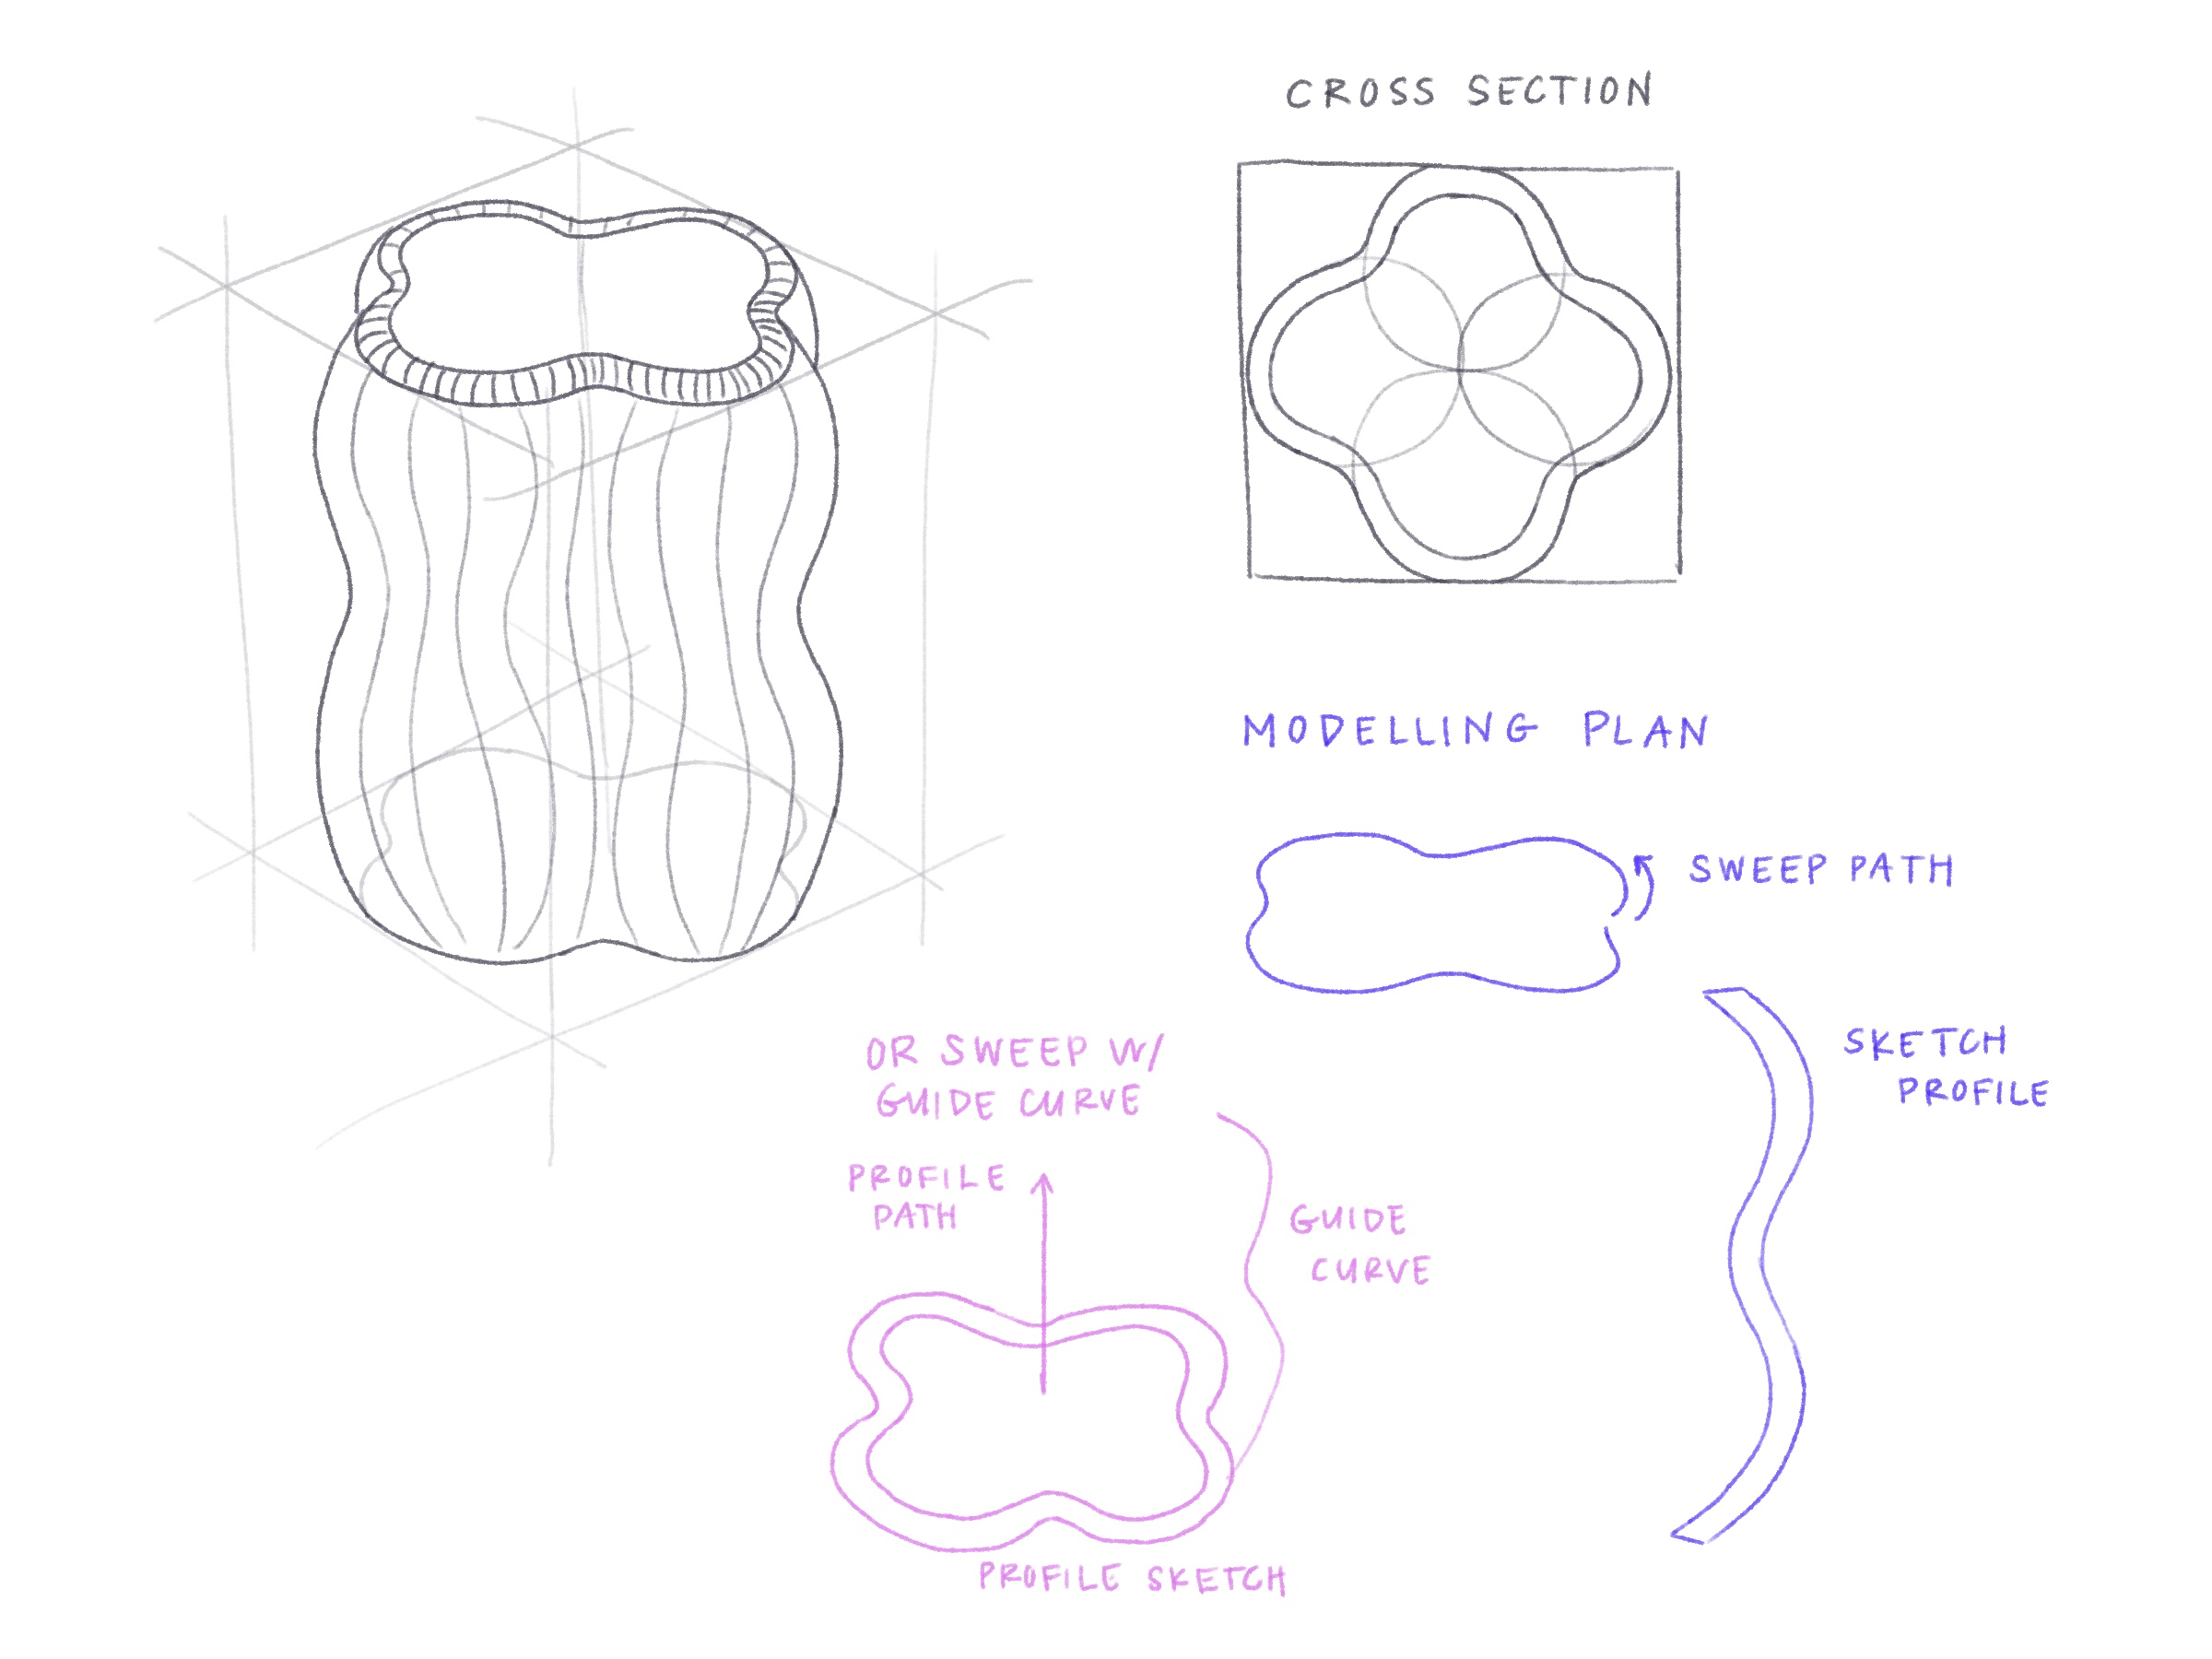 CROSS SECTION
MODELLING PLAN
SWEEP PATH
SKETCH
PROFILE
OR SWEEP W/
GUIDE CURVE
PROFILE
PATH
GUIDE
CURVE
PROFILE SKETCH